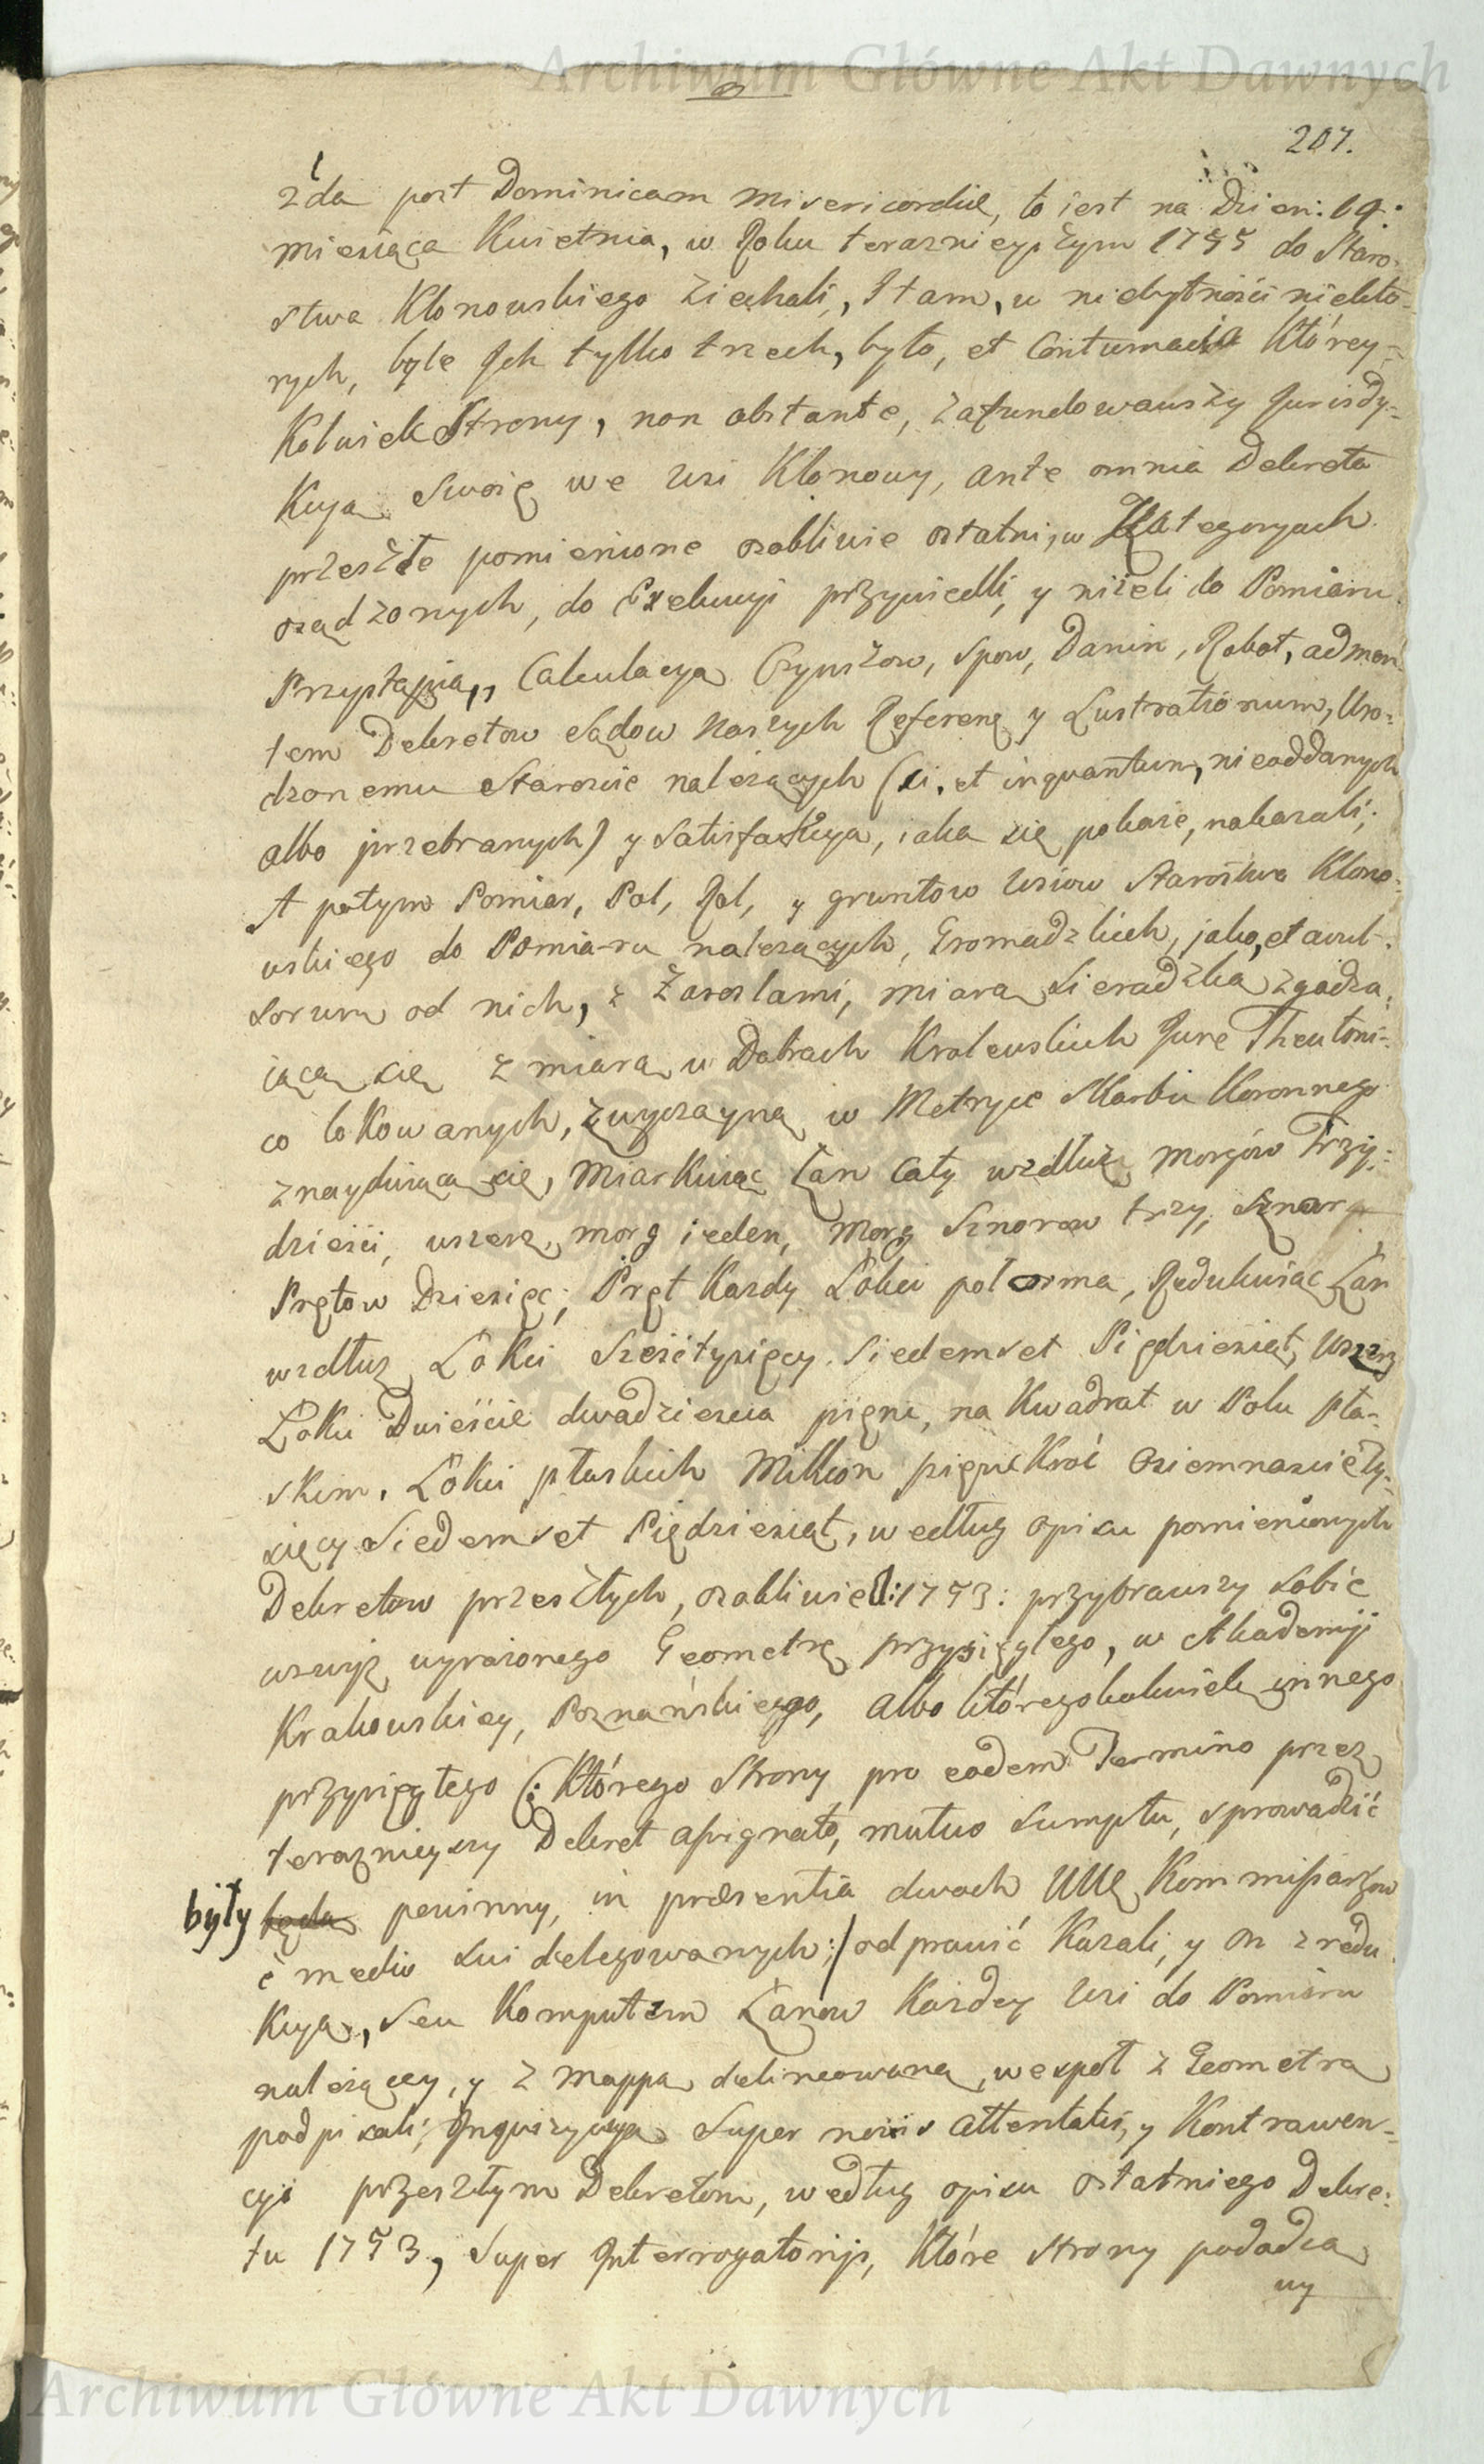 Archiwum Główne Akt Dawnych
207.
żda post Dominicam Misericordiæ, to iest na Dzien: 19.
Miesiąca Kwietnia, w Roku teraznieyszym 1755 do Staro-
stwa Klonowskiego ziechali, Itam, w niebytności niekto-
rych, byle Ich tylko trzech, było, et Contumacia Którey-
Kolwiek Strony, non obstante, zafundowawszy Jurisdy-
Kcyą Swoię we Wsi Klonowy, ante omnia Dekreta
przeszłe pomienione osobliwie ostatni, w Kategoryach
osądzonych, do Exekucyi przywiedli, y niżeli do Pomiaru
Przystąpią, Calculacyą Czynszow, Spow, Danin, Robot, ad men-
tem Dekretow Sądow Naszych Referen: y Lustrationum, Uro-
dzonemu Staroscie należących (si, et inquantum, nieoddanych
albo przebranych) y Satisfakcyą, iaka się pokaże, nakazali;
A potym Pomiar, Pol, Rol, y gruntow Wsiow Starostwa Klono-
wskiego do Pomiaru należących, Gromadzkich, jako, et avul-
sorum od nich, z Zaroslami, miarą Sieradzką zgadza-
iącą się z miarą w Dobrach Krolewskich Jure Theutoni-
co loKowanych, zwyczayną w Metryce Skarbu Koronnego
znayduiącą się, MiarKuiąc Łan Cały wzdłuż Morgów Trzy-
dzieści, wszerz, morg ieden, Morg Sznorow trzy, Sznur
Prętow Dziesięć; Pręt Kazdy Łokci polosma, Redukuiąc Łan
wzdłuz Łokci Sześćtysięcy Siedemset Pięćdziesiąt, Wszerz
Łokci Dwieście dwadziescia pięni, na Kwadrat w Polu pła-
skim, Łokci płaskich Million pięniKroć Osiemnasciety-
sięcy Siedemset Pięćdziesiąt, według opisu pomienionych
Dekretow przeszłych, osobliwie 1753: przybrawszy Sobie
wzwyż wyrażonego Geometrę przysięgłego, w Akademij
Krakowskiey, Poznańskiego, Albo któregokolwiek innego
przysięgłego (: Którego Strony pro eodem Termino przez
terazniejszy Dekret assignato, mutuo Sumptu, sprowadzić
były będą powinny, in præsentia dwoch UUę Kommissarzow
e medio sui delegowanych :/ odprawić Kazali, y On z redu-
Kcyą, seu Komputem Łanow Kazdey Wsi do Pomiaru
należącey, y z Mappą delineowaną, wespoł z Geometrą
podpisali, Inquizycyą Super novis attentatis, y Kontrawen-
cyi przeszłym Dekretom, według opisu Ostatniego Dekre-
tu 1753, Super Interrogatorijs, Które Strony podadzą
wy
Archiwum Główne Akt Dawnych